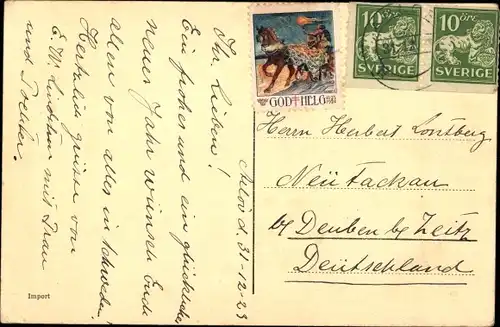 Arlöv d. 31-12-23
Ihr Lieben!
Ein frohes und ein glückliches
neues Jahr wünsch Euch
allen von alles in Schweden,
Herzlich grüsse von
E. W. mit Frau
und Tochter.
GOD HELG
10 ÖRE
SVERIGE
10 ÖRE
SVERIGE
Herrn Herbert Lontzberg
Neü Packau
by Deuben by Zeitz
Deütschland
Import